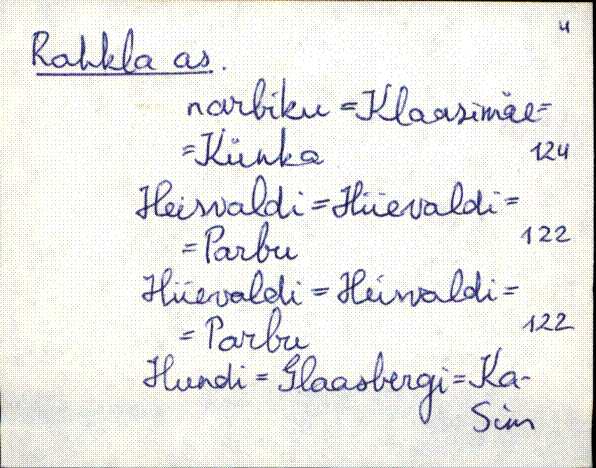 4
Rahkla as.
narbiku = Klaasimäe =
= Künka 124
Heisvaldi = Hüevaldi =
= Parbu 122
Hüevaldi = Heisvaldi =
= Parbu 122
Hundi = Glaasbergi = Ka-
Sim